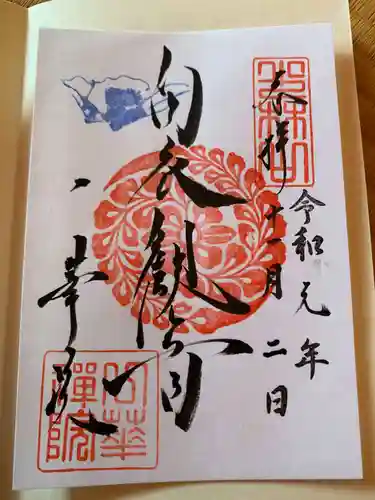 奉拝
令和元年
十一月二日
白衣観音
一華院
一華禅院